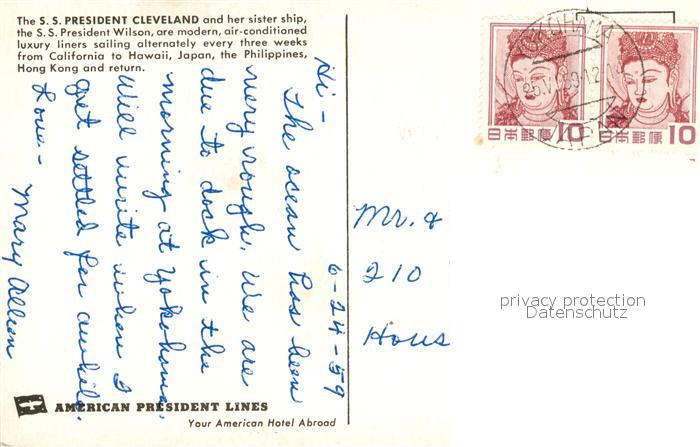 The S. S. PRESIDENT CLEVELAND and her sister ship,
the S.S. President Wilson, are modern, air-conditioned
luxury liners sailing alternately every three weeks
from California to Hawaii, Japan, the Philippines,
Hong Kong and return.
6-24-59
Hi -
The ocean has been
very rough. We are
due to dock in the
morning at Yokohama.
Will write when I
get settled for awhile.
Love -
Mary Allison
AMERICAN PRESIDENT LINES
Your American Hotel Abroad
YOKOHAMA
JAPAN
日本郵便 10
日本郵便 10
Mr. &
210
Hous
privacy protection
Datenschutz